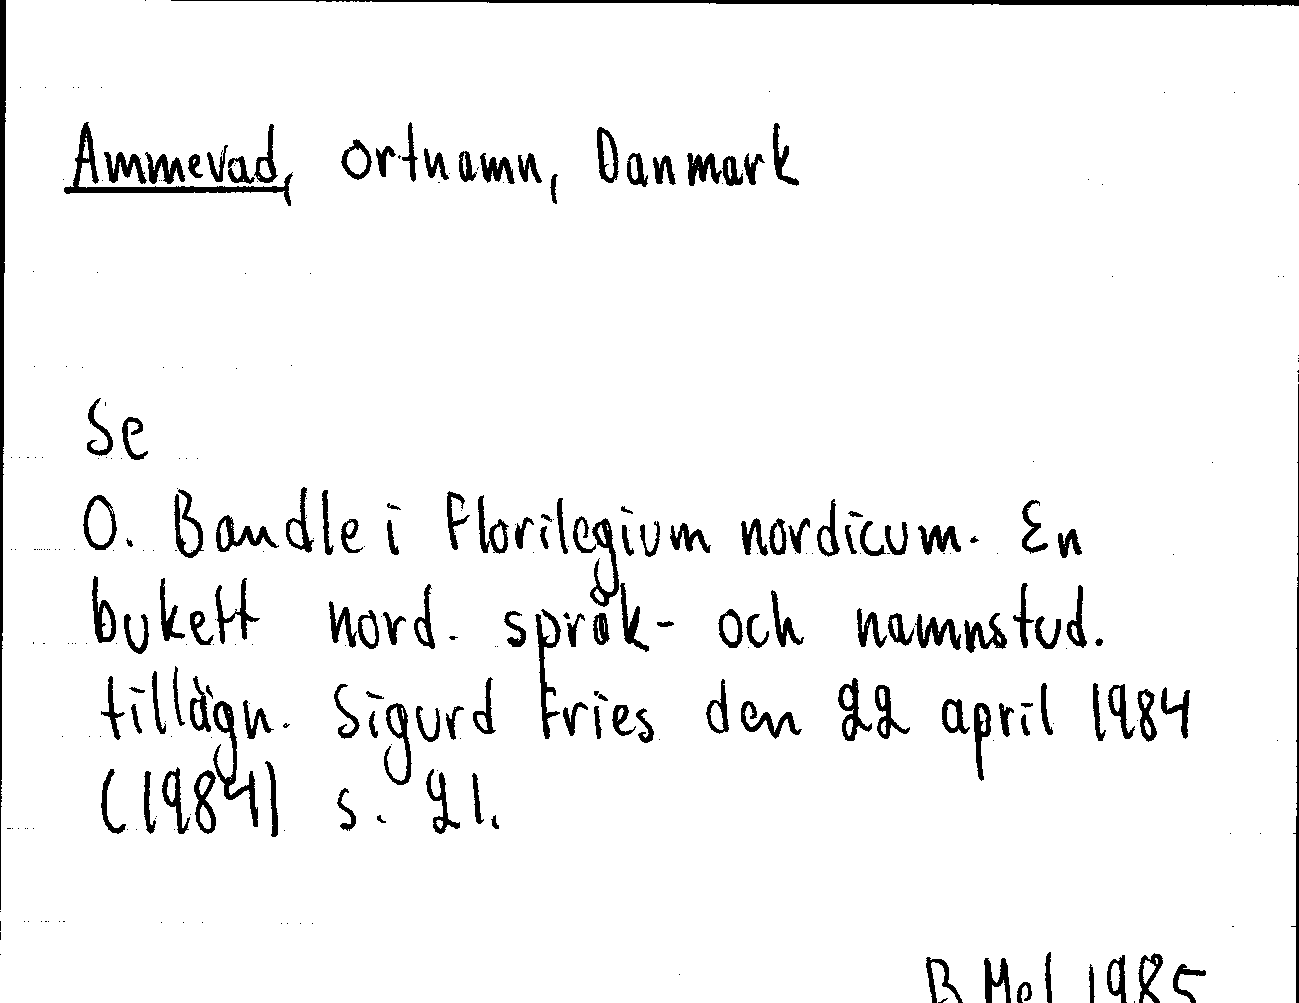 Ammevad, ortnamn, Danmark
Se
O. Bandle i Florilegium nordicum. En
bukett nord. språk- och namnstud.
tillägn. Sigurd Fries den 22 april 1984
(1984) s. 21.
B Mel 1985